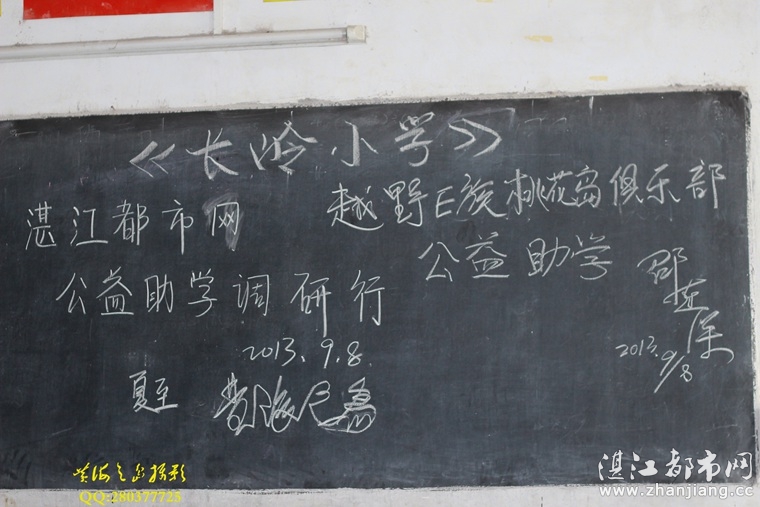 《长岭小学》
湛江都市网
公益助学调研行
2013.9.8
夏至
越野E族桃花岛俱乐部
公益助学
2013.9/8
黄海之岛摄影
QQ-280377725
湛江都市网
www.zhanjiang.cc